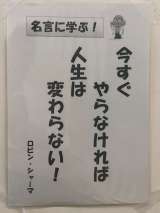 名言に学ぶ！
今すぐ
やらなければ
人生は
変わらない！
ロビン・シャーマ